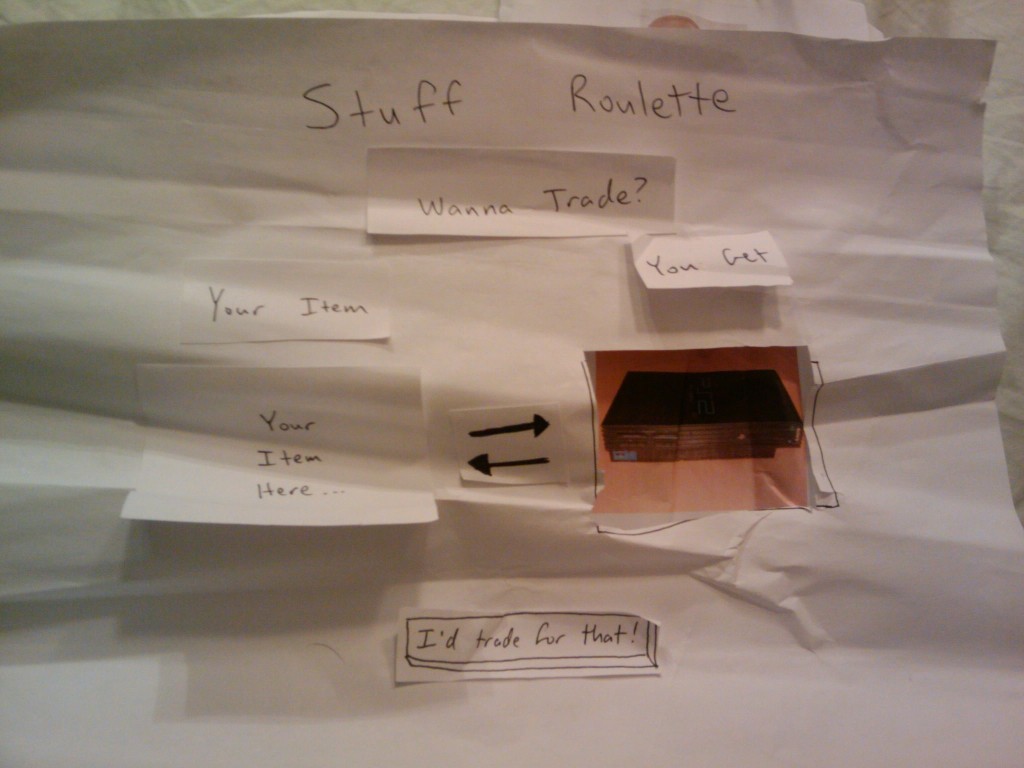 Stuff Roulette
Wanna Trade?
You Get
Your Item
Your
Item
Here...
I'd trade for that!